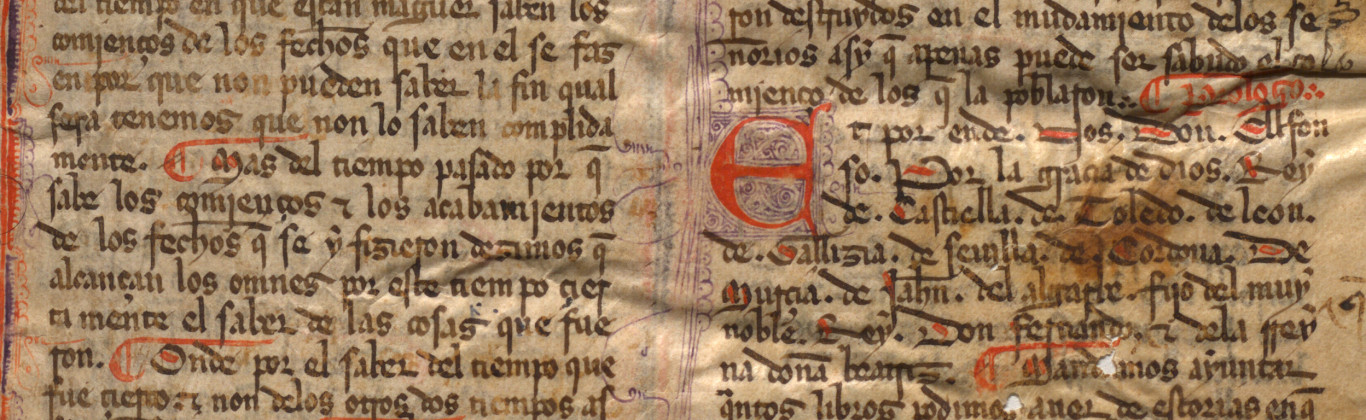 del tiempo en que estan maguer saben los
comienços de los fechos que en el se faz
en por que non pueden saber la fin qual
sera tenemos que non lo saben complida
mente. ¶ Mas del tiempo pasado por q̄
sabe los comienços ⁊ los acabamientos
de los fechos q̄ se ỹ fizieron dezimos q̄
alcançan los omnes por este tiempo cier
ta mente el saber de las cosas que fue
ron. ¶ Onde por el saber del tiempo que
fue cierto ⁊ non delos otros dos tiempos as
ron destruydos en el mudamiento delos se
norios asy q̄ apenas puede ser sabido el co
mienço de los q̄ la poblaron. ¶
Et por ende. Nos. Don. Alfon
so. Por la gracia de dios. Rey
de. Castiella. de. Toledo. de leon.
de. Gallizia. de seuilla. de. Cordoua. De
Murcia. de Jahn. del algarbe. fijo del muy
noble. Rey. Don fernando. ⁊ dela rrey
na doña beatriz. ¶ Mandamos ayuntar
q̃ntos libros podimos auer de estorias en q̄